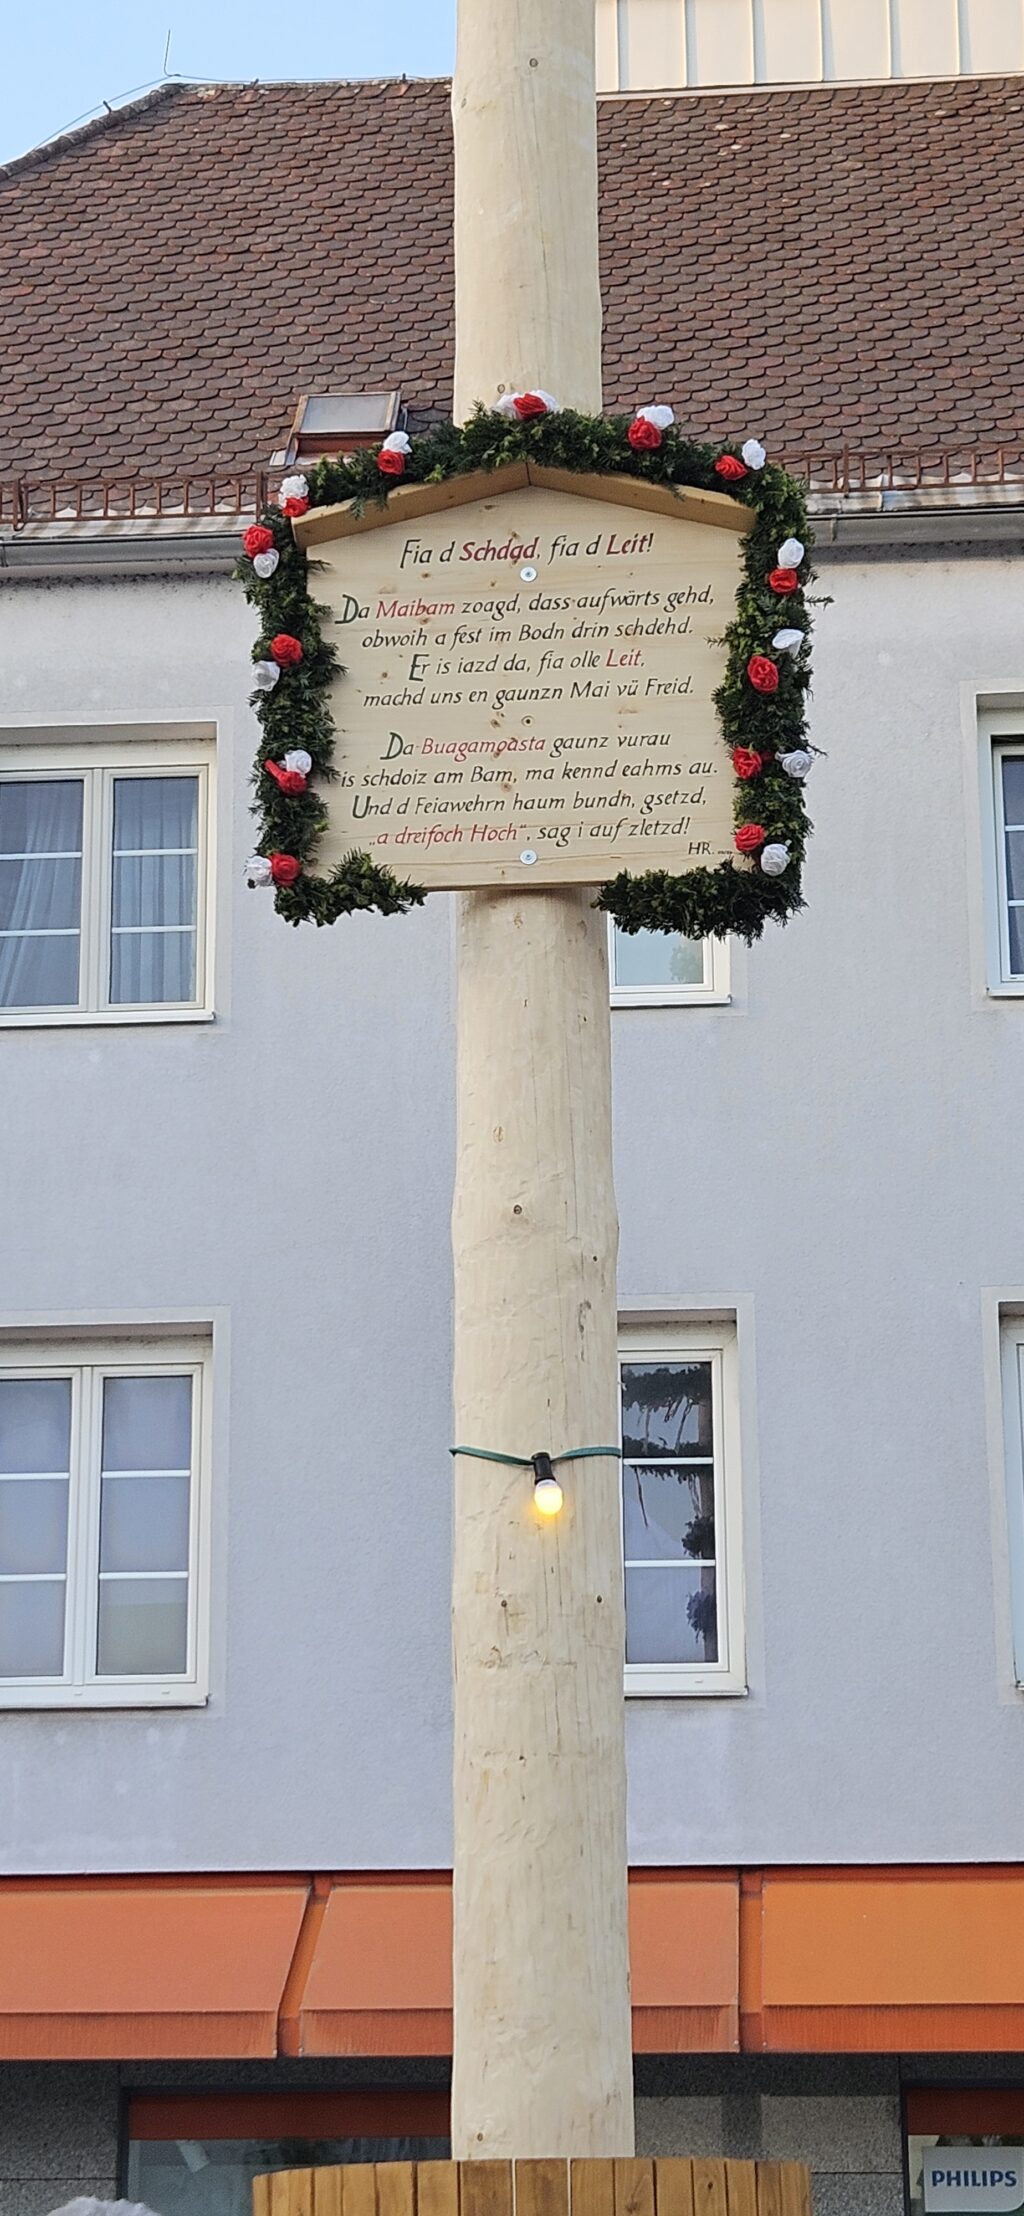 Fia d Schdod, fia d Leit!
Da Maibam zoagd, dass aufwärts gehd,
obwoih a fest im Bodn drin schdehd.
Er is iazd da, fia olle Leit,
machd uns en gaunzn Mai vü Freid.
Da Buagamoasta gaunz vurau
is schdoiz am Bam, ma kennd eahms au.
Und d Feiawehrn haum bundn, gsetzd,
„a dreifoch Hoch", sag i auf zletzd!
HR.
PHILIPS